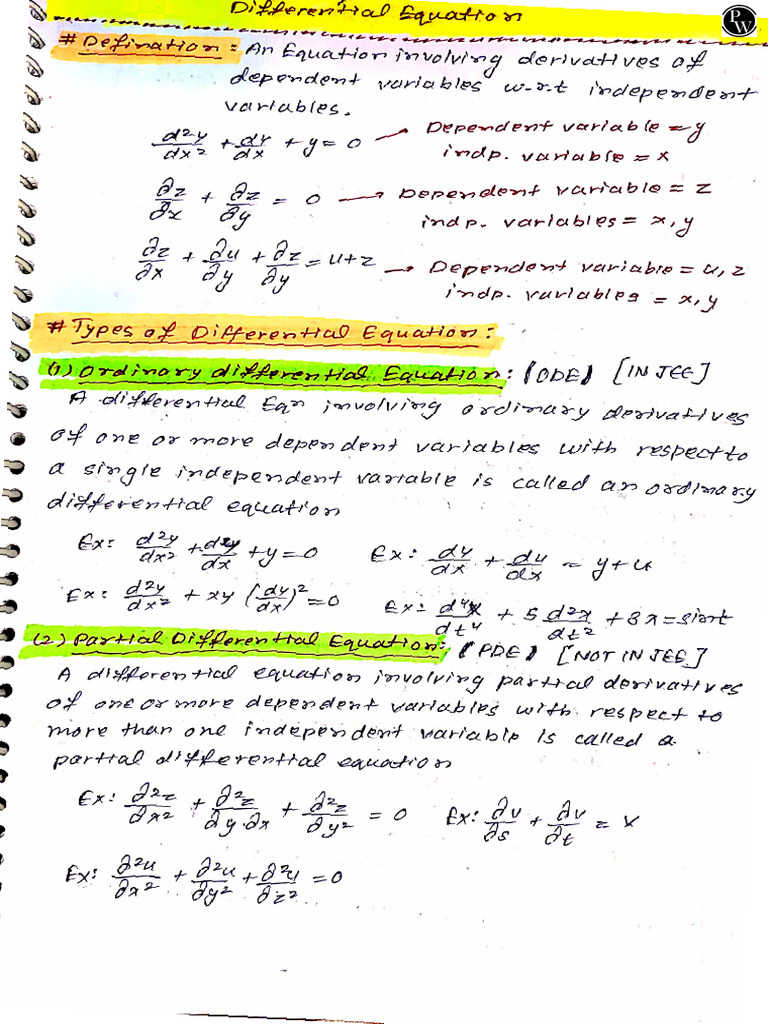 Differential Equation
PW
# Defination : An Equation involving derivatives of
dependent variables w.r.t independent
variables.
d²y/dx² + dy/dx + y = 0 → Dependent variable = y
indp. variable = x
∂z/∂x + ∂z/∂y = 0 → Dependent variable = z
indp. variables = x, y
∂z/∂x + ∂u/∂y + ∂z/∂y = u+z → Dependent variable = u, z
indp. variables = x, y
# Types of Differential Equation :
(1) Ordinary differential Equation : (ODE) [IN JEE]
A differential Eqn involving ordinary derivatives
of one or more dependent variables with respect to
a single independent variable is called an ordinary
differential equation
Ex: d²y/dx² + dy/dx + y = 0 Ex: dy/dx + du/dx = y + u
Ex: d²y/dx² + xy (dy/dx)² = 0 Ex: d⁴x/dt⁴ + 5 d²x/dt² + 8x = sint
(2) Partial Differential Equation : (PDE) [NOT IN JEE]
A differential equation involving partial derivatives
of one or more dependent variables with respect to
more than one independent variable is called a
partial differential equation
Ex: ∂²z/∂x² + ∂²z/∂y·∂x + ∂²z/∂y² = 0 Ex: ∂v/∂s + ∂v/∂t = x
Ex: ∂²u/∂x² + ∂²u/∂y² + ∂²u/∂z² = 0